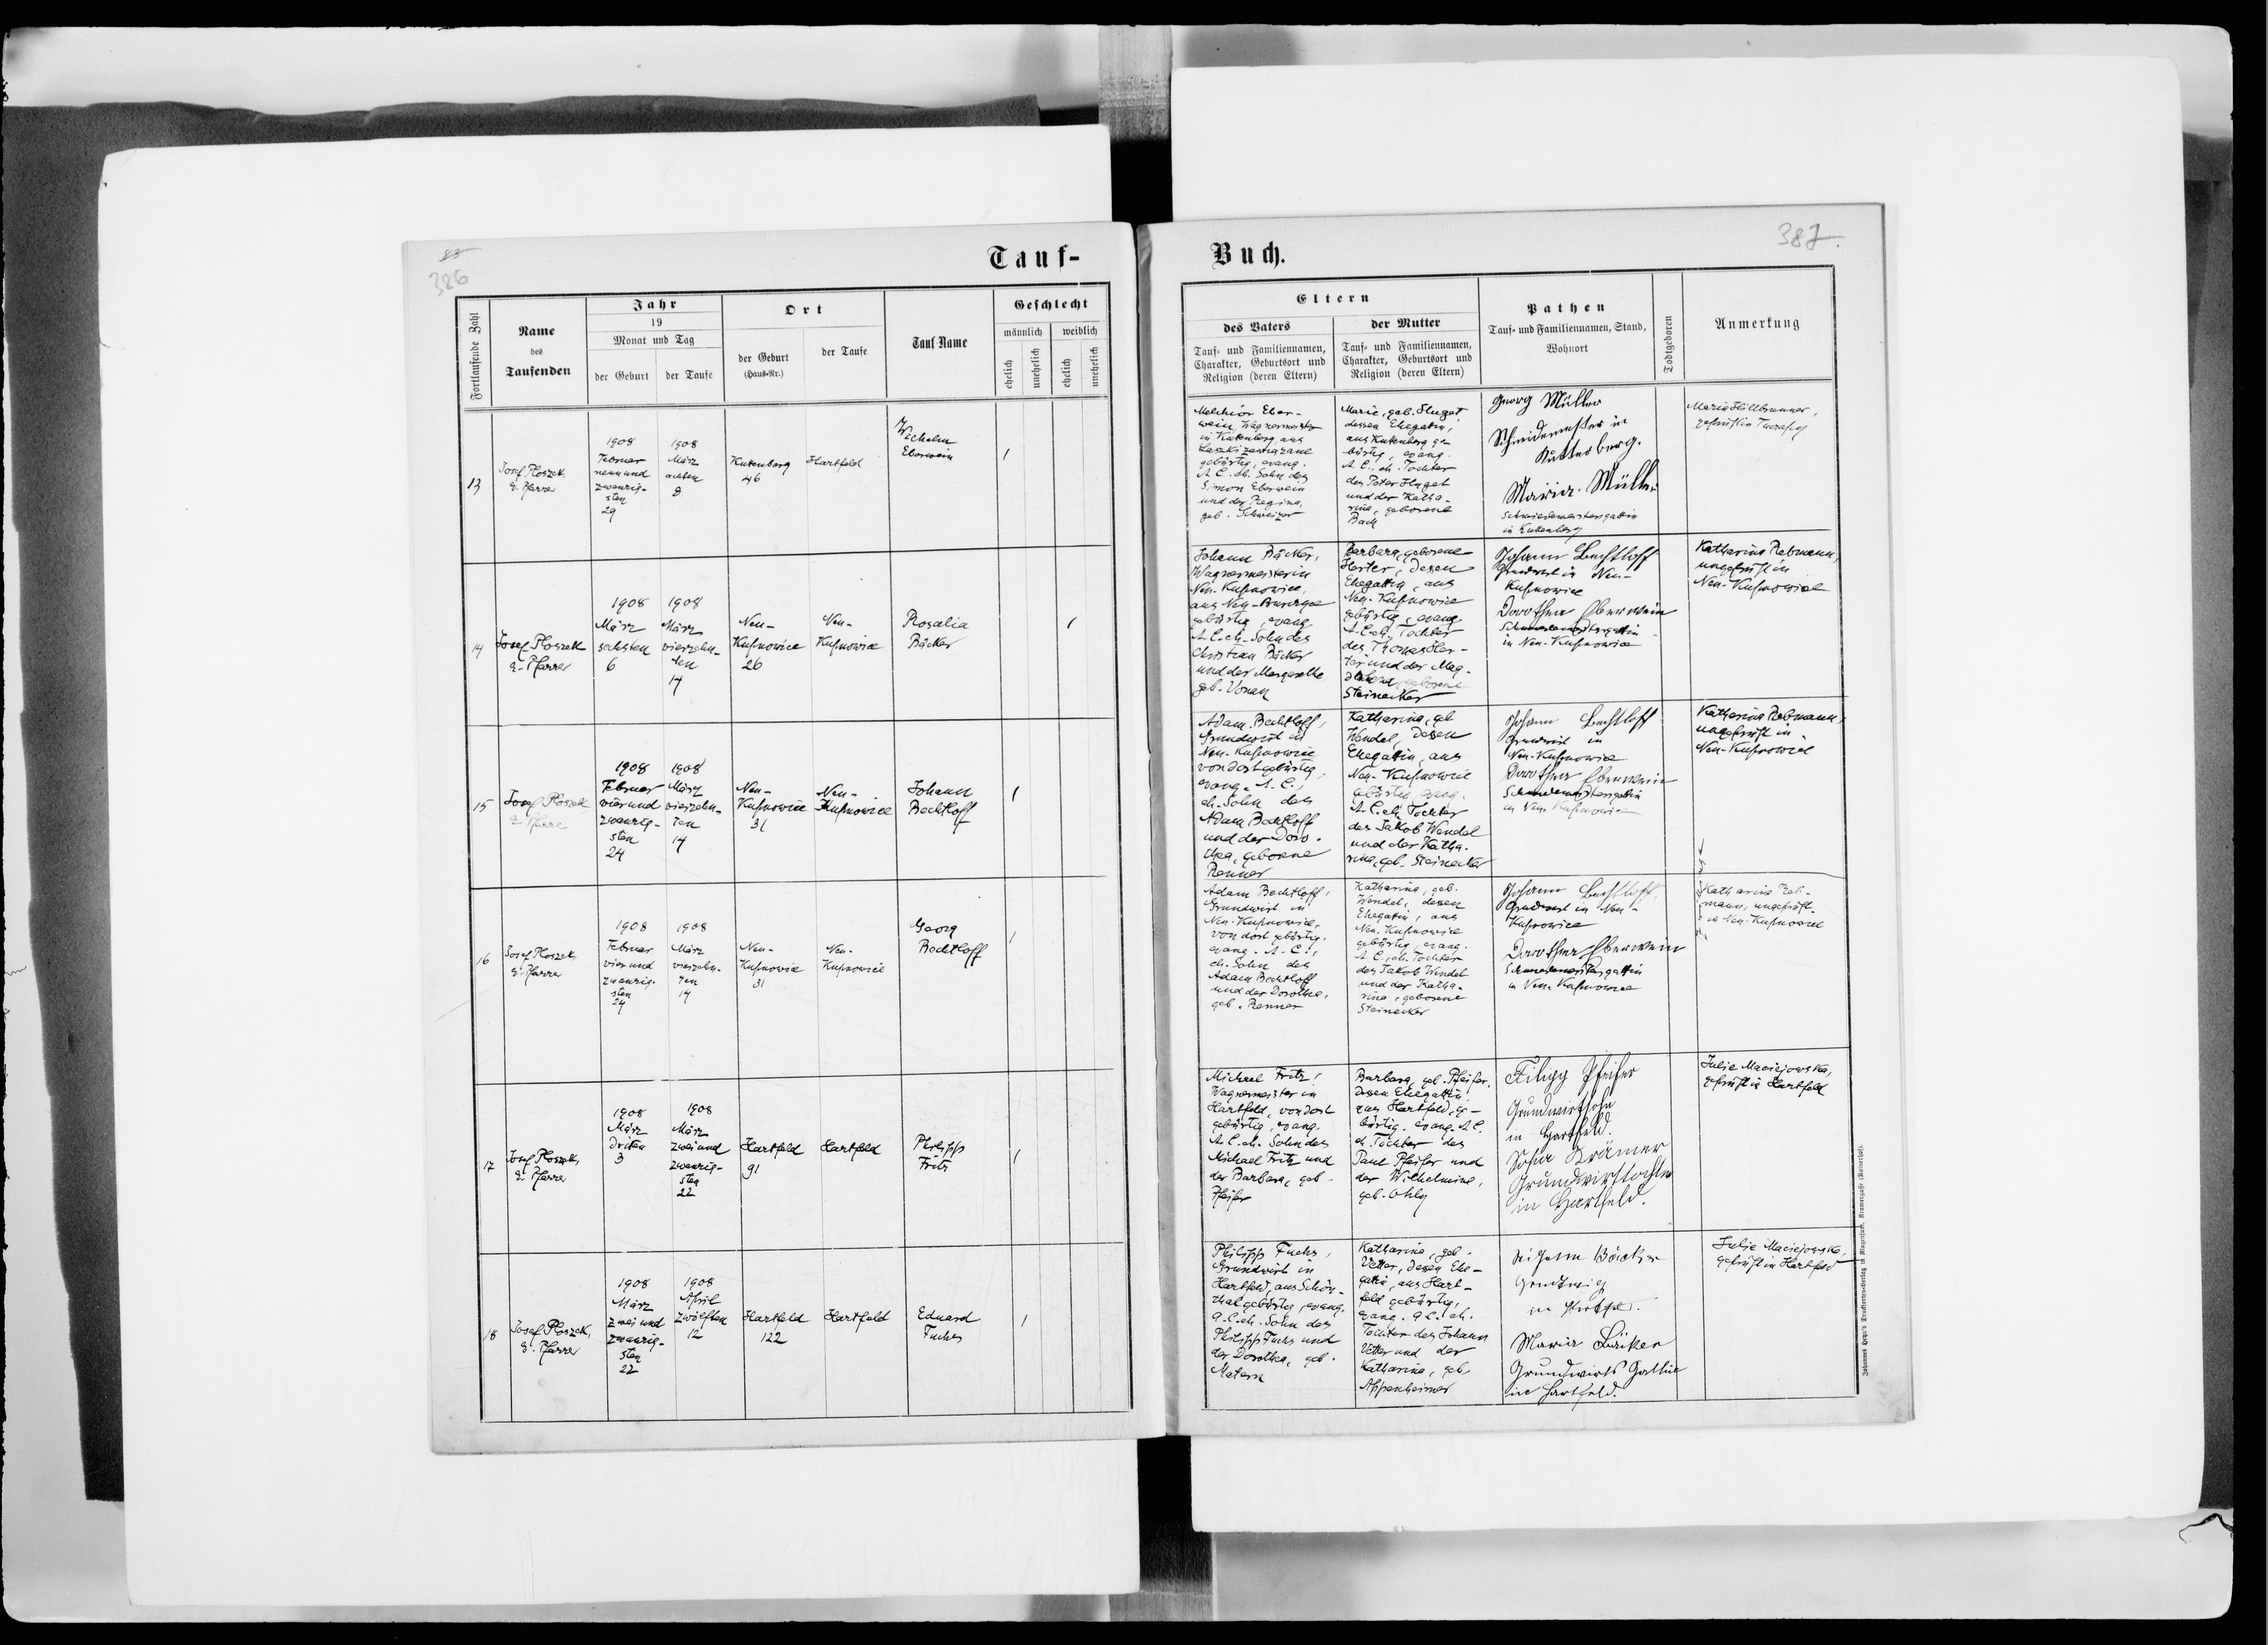 83
386
Tauf-
Fortlaufende Zahl
Name
des
Taufenden
Jahr
19
Monat und Tag
der Geburt
der Taufe
Ort
der Geburt
(Haus-Nr.)
der Taufe
Tauf-Name
Geschlecht
männlich
weiblich
ehelich
unehelich
ehelich
unehelich
13
Josef Ploszek,
E. Pfarrer
1908
Februar
neunund
zwanzig-
sten
29
1908
März
achten
8
Kutenberg
46
Hartfeld
Wilhelm
Eberwein
1
14
Josef Ploszek
E. Pfarrer
1908
März
sechsten
6
1908
März
vierzehn-
ten
14
Neu-
Kupnowice
26
Neu-
Kupnowice
Rosalia
Bäcker
1
15
Josef Ploszek
E. Pfarre
1908
Februar
vierund
zwanzig-
sten
24
1908
März
vierzehn-
ten
14
Neu-
Kupnowice
31
Neu-
Kupnowice
Johann
Bechtloff
1
16
Josef Ploszek,
E. Pfarrer
1908
Februar
vierund
zwanzig-
sten
24
1908
März
vierzehn-
ten
14
Neu-
Kupnowice
31
Neu-
Kupnowice
Georg
Bechtloff
1
17
Josef Ploszek,
E. Pfarrer
1908
März
dritten
3
1908
März
zweiund
zwanzig-
sten
22
Hartfeld
91
Hartfeld
Philipp
Fritz
1
18
Josef Ploszek,
E. Pfarrer
1908
März
zweiund
zwanzig-
sten
22
1908
April
zwölften
12
Hartfeld
122
Hartfeld
Eduard
Fuchs
1
Buch.
387.
Eltern
des Vaters
Tauf- und Familiennamen,
Charakter, Geburtsort und
Religion (deren Eltern)
der Mutter
Tauf- und Familiennamen,
Charakter, Geburtsort und
Religion (deren Eltern)
Pathen
Tauf- und Familiennamen, Stand,
Wohnort
Todtgeboren
Anmerkung
Melchior Eber-
wein, Wagnermeister
in Kutenberg, aus
gebürtig, evang.
A. C. eh. Sohn des
Simon Eberwein
und der Regina,
geb. Schweizer
Marie, geb. Huget
dessen Ehegattin,
aus Kutenberg ge-
bürtig, evang.
A. C., eh. Tochter
des Peter Huget
und der Katha-
rina, geborene
Bach
Georg Müller
Schmidemeister in
Kuttenberg.
Maria Müller
Schmiedemeistersgattin
in Kuttenberg
Maria Hillbrunner,
geprüft in
Johann Bäcker,
Wagnermeister in
Neu-Kupnowice,
aus Neu-
gebürtig, evang.
A. C. eh. Sohn des
Christian Bäcker
und der Margarethe
geb. Vonau
Barbara, geborene
Herter, dessen
Ehegattin, aus
Neu-Kupnowice
gebürtig, evang.
A. C. eh. Tochter
des Thomas Her-
ter und der Mag-
dalena, geborene
Steinecker
Johann Bechtloff
Grundwirt in Neu-
Kupnowice
Dorothea Eberwein
Schmiedemeistersgattin
in Neu-Kupnowice
Katharina Rebmann,
ungeprüft in
Neu-Kupnowice
Adam Bechtloff,
Grundwirt in
Neu-Kupnowice
von dort gebürtig,
evang. A. C.,
eh. Sohn des
Adam Bechtloff
und der Doro-
thea, geborene
Renner
Katharina, geb.
Wendel, dessen
Ehegattin, aus
Neu-Kupnowice
gebürtig, evang.
A. C. eh. Tochter
des Jakob Wendel
und der Katha-
rina, geb. Steinecker
Johann Bechtloff
Grundwirt in
Neu-Kupnowice
Dorothea Eberwein
Schmiedemeistersgattin
in Neu-Kupnowice
Katharina Rebmann,
ungeprüft in
Neu-Kupnowice
Adam Bechtloff,
Grundwirt in
Neu-Kupnowice,
von dort gebürtig,
evang. A. C.,
eh. Sohn des
Adam Bechtloff
und der Dorothea,
geb. Renner
Katharina, geb.
Wendel, dessen
Ehegattin, aus
Neu-Kupnowice
gebürtig, evang.
A. C., eh. Tochter
des Jakob Wendel
und der Katha-
rina, geborene
Steinecker
Johann Bechtloff,
Grundwirt in Neu-
Kupnowice
Dorothea Eberwein
Schmiedemeistersgattin
in Neu-Kupnowice
Katharina Reb-
mann, ungeprüft
in Neu-Kupnowice
Michael Fritz,
Wagnermeister in
Hartfeld, von dort
gebürtig, evang.
A. C. eh. Sohn des
Michael Fritz und
der Barbara, geb.
Pfeifer
Barbara, geb. Pfeifer,
dessen Ehegattin,
aus Hartfeld, ge-
bürtig, evang. A. C.
eh. Tochter des
Paul Pfeifer und
der Wilhelmine,
geb. Ohly
Filipp Pfeifer
Grundwirtsohn
in Hartfeld.
Sofia Krämer
Grundwirtstochter
in Hartfeld.
Julie Maciejowska,
geprüft in Hartfeld
Philipp Fuchs,
Grundwirt in
Hartfeld, aus Schön-
thal gebürtig, evang.
A. C. eh. Sohn des
Philipp Fuchs und
der Dorothea, geb.
Matern
Katharina, geb.
Vetter, dessen Ehe-
gattin, aus Hart-
feld gebürtig,
evang. A. C. eh.
Tochter des Johann
Vetter und der
Katharina, geb.
Appenheimer
Bäcker
in
Maria Bäcker
Grundwirts Gattin
in Hartfeld.
Julie Maciejowska,
geprüft in Hartfeld